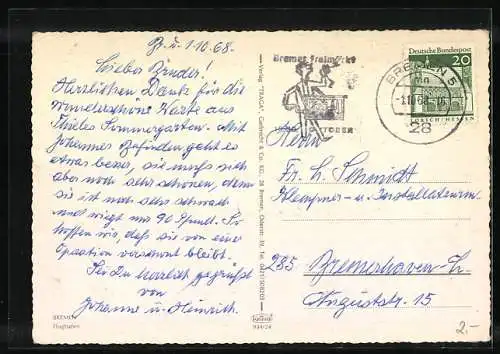 Br. d. 1.10.68.
Lieber Bruder!
Herzlichen Dank für die
wunderschöne Karte aus
Thieles Sommergarten. Mit
Johannes Befinden geht es
etwas besser, sie muß sich
aber noch sehr schonen, denn
sie ist noch sehr schwach
und wiegt nur 90 Pfund. Wir
hoffen wir, daß sie von einer
Operation verschont bleibt.
Sei Du herzlich gegrüßt
von
Johanne u. Heinrich.
BREMEN
Flughafen
Verlag "TRAGA", Carbrecht & Co. KG, 28 Bremen
934/24
Bremer Freimarkt
OKTOBER
BREMEN 5
-1.10.68
28
Deutsche Bundespost
20
LORSCH/HESSEN
Herrn
Fr. H. Schmidt
Klempner- u. Installateurm.
285 Bremerhaven-L.
Auguststr. 15
2.-